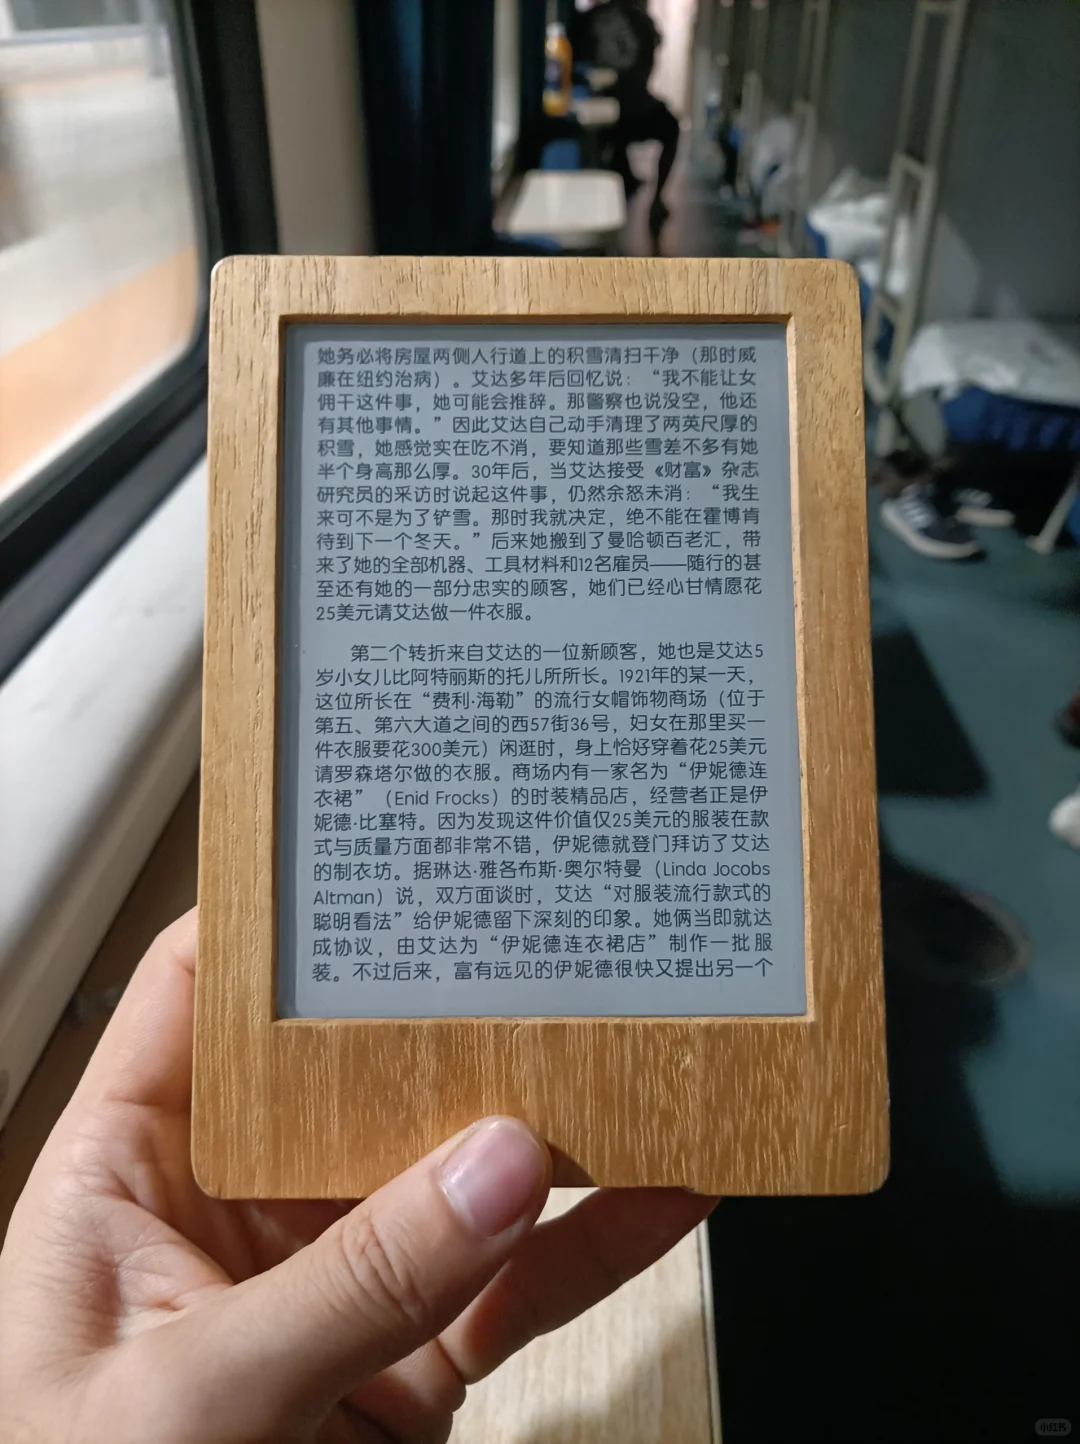 她务必将房屋两侧人行道上的积雪清扫干净（那时威
廉在纽约治病）。艾达多年后回忆说：“我不能让女
佣干这件事，她可能会推辞。那警察也说没空，他还
有其他事情。”因此艾达自己动手清理了两英尺厚的
积雪，她感觉实在吃不消，要知道那些雪差不多有她
半个身高那么厚。30年后，当艾达接受《财富》杂志
研究员的采访时说起这件事，仍然余怒未消：“我生
来可不是为了铲雪。那时我就决定，绝不能在霍博肯
待到下一个冬天。”后来她搬到了曼哈顿百老汇，带
来了她的全部机器、工具材料和12名雇员——随行的甚
至还有她的一部分忠实的顾客，她们已经心甘情愿花
25美元请艾达做一件衣服。
第二个转折来自艾达的一位新顾客，她也是艾达5
岁小女儿比阿特丽斯的托儿所所长。1921年的某一天，
这位所长在“费利·海勒”的流行女帽饰物商场（位于
第五、第六大道之间的西57街36号，妇女在那里买一
件衣服要花300美元）闲逛时，身上恰好穿着花25美元
请罗森塔尔做的衣服。商场内有一家名为“伊妮德连
衣裙”（Enid Frocks）的时装精品店，经营者正是伊
妮德·比塞特。因为发现这件价值仅25美元的服装在款
式与质量方面都非常不错，伊妮德就登门拜访了艾达
的制衣坊。据琳达·雅各布斯·奥尔特曼（Linda Jocobs
Altman）说，双方面谈时，艾达“对服装流行款式的
聪明看法”给伊妮德留下深刻的印象。她俩当即就达
成协议，由艾达为“伊妮德连衣裙店”制作一批服
装。不过后来，富有远见的伊妮德很快又提出另一个
小红书